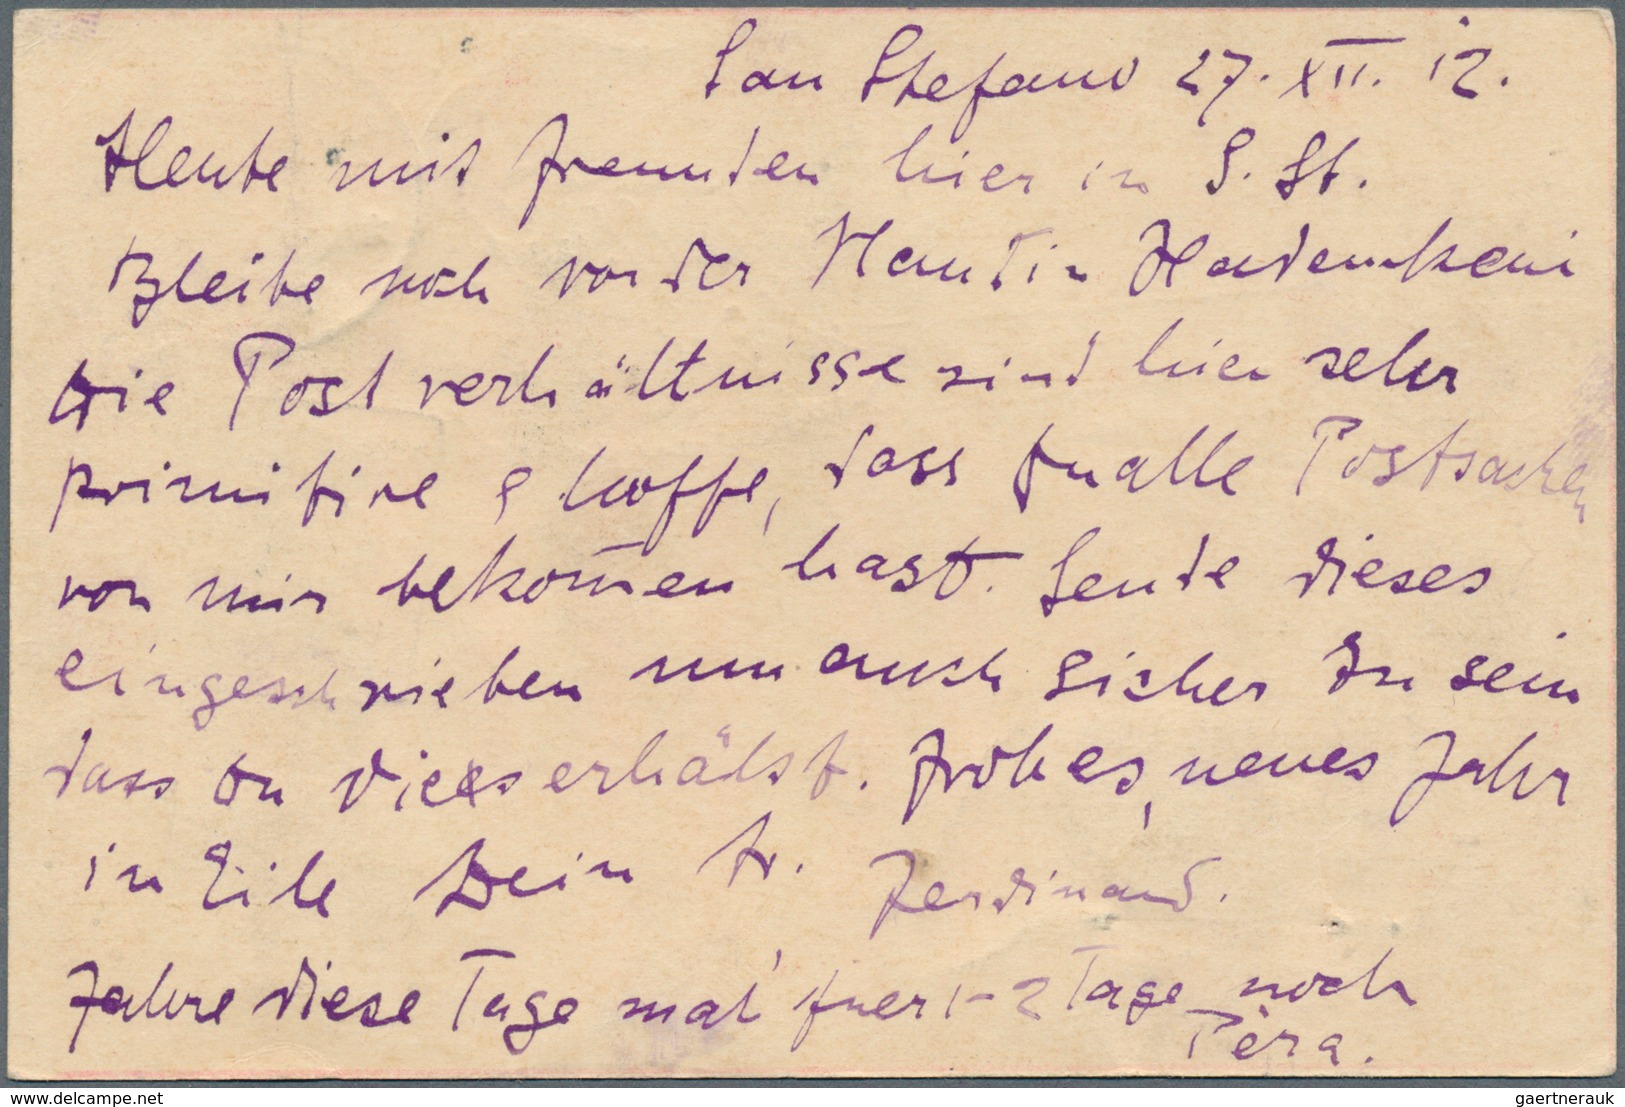 San Stefano 27. XII. 12.
Heute mit Freunden hier in S. St.
Bleibe noch vor der Hand in Hademkeui
Die Postverhältnisse sind hier sehr
primitive & hoffe, dass Du alle Postsachen
von mir bekom̄en hast. Sende dieses
eingeschrieben um auch sicher zu sein
dass Du dieses erhälst. Frohes, neues Jahr
in Eile Dein tr. Ferdinand.
Fahre diese Tage mal fuer 1-2 Tage noch
Pèra.
delcampe.net
gaertnerauk